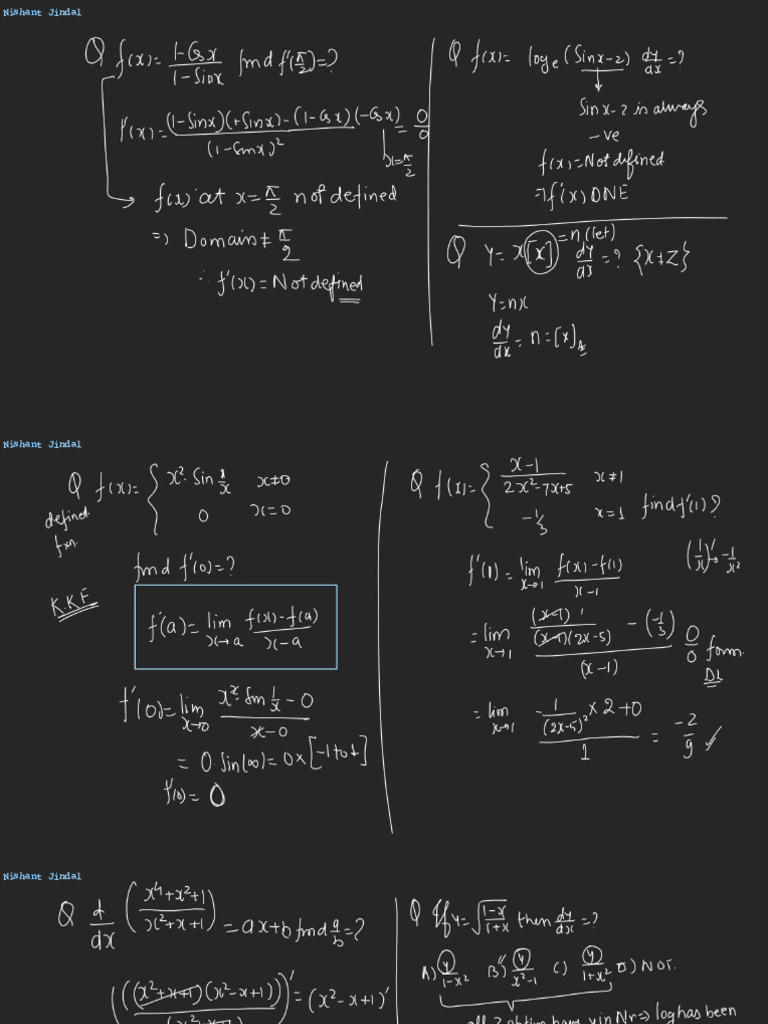 Nishant Jindal
Q f(x) = 1-Cosx / 1-Sinx find f'(π/2) = ?
f'(x) = (1-Sinx)(+Sinx) - (1-Cosx)(-Cosx) / (1-Sinx)² = 0/0
x=π/2
f(x) at x = π/2 not defined
⇒ Domain ≠ π/2
∴ f'(x) = Not defined
Q f(x) = logₑ(Sinx-2) dy/dx = ?
Sinx-2 is always
-ve
f(x) = Not defined
⇒ f'(x) DNE
Q Y = x[x] = n (let) dy/dx = ? {x≠Z}
Y = nx
dy/dx = n = [x]
Nishant Jindal
Q f(x) = { x²·Sin 1/x x≠0
0 x=0
defined
fxn.
find f'(0) = ?
K.K.F
f'(a) = lim x→a f(x)-f(a) / x-a
f'(0) = lim x→0 x²·Sin 1/x - 0 / x-0
= 0·Sin(∞) = 0×[-1 to 1]
f'(0) = 0
Q f(x) = { x-1 / 2x²-7x+5 x≠1
-1/3 x=1 find f'(1)?
f'(1) = lim x→1 f(x)-f(1) / x-1
(1/x)' → -1/x²
= lim x→1 (x-1) 1 / (x-1)(2x-5) - (-1/3) / (x-1) 0/0 form.
DL
= lim x→1 -1/(2x-5)² × 2+0 / 1 = -2/9 ✓
Nishant Jindal
Q d/dx (x⁴+x²+1 / x²+x+1) = ax+b find a/b = ?
((x²+x+1)(x²-x+1) / (x²+x+1))' = (x²-x+1)'
Q If y = √(1-x / 1+x) then dy/dx = ?
A) y/1-x² B) y/x²-1 C) y/1+x² D) NOT.
all 3 option have y in Nr ⇒ log has been